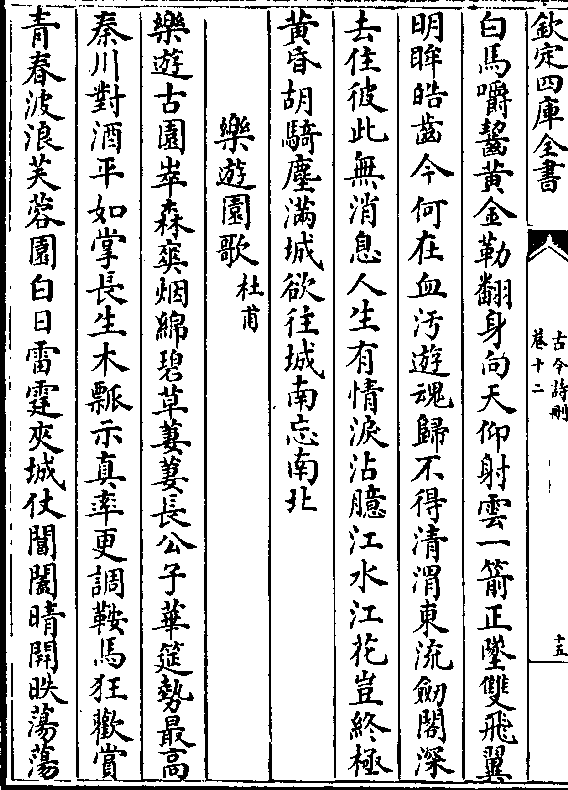 欽定四庫全書
古今詩刪
卷十二
十五
白馬嚼齧黃金勒翻身向天仰射雲一箭正墜雙飛翼
明眸皓齒今何在血汚遊魂歸不得清渭東流劒閣深
去住彼此無消息人生有情淚沾臆江水江花豈終極
黃昏胡騎塵滿城欲往城南忘南北
樂遊園歌 杜甫
樂遊古園崒森爽烟綿碧草萋萋長公子華筵勢最高
秦川對酒平如掌長生木瓢示真率更調鞍馬狂歡賞
青春波浪芙蓉園白日雷霆夾城仗閶闔晴開昳蕩蕩